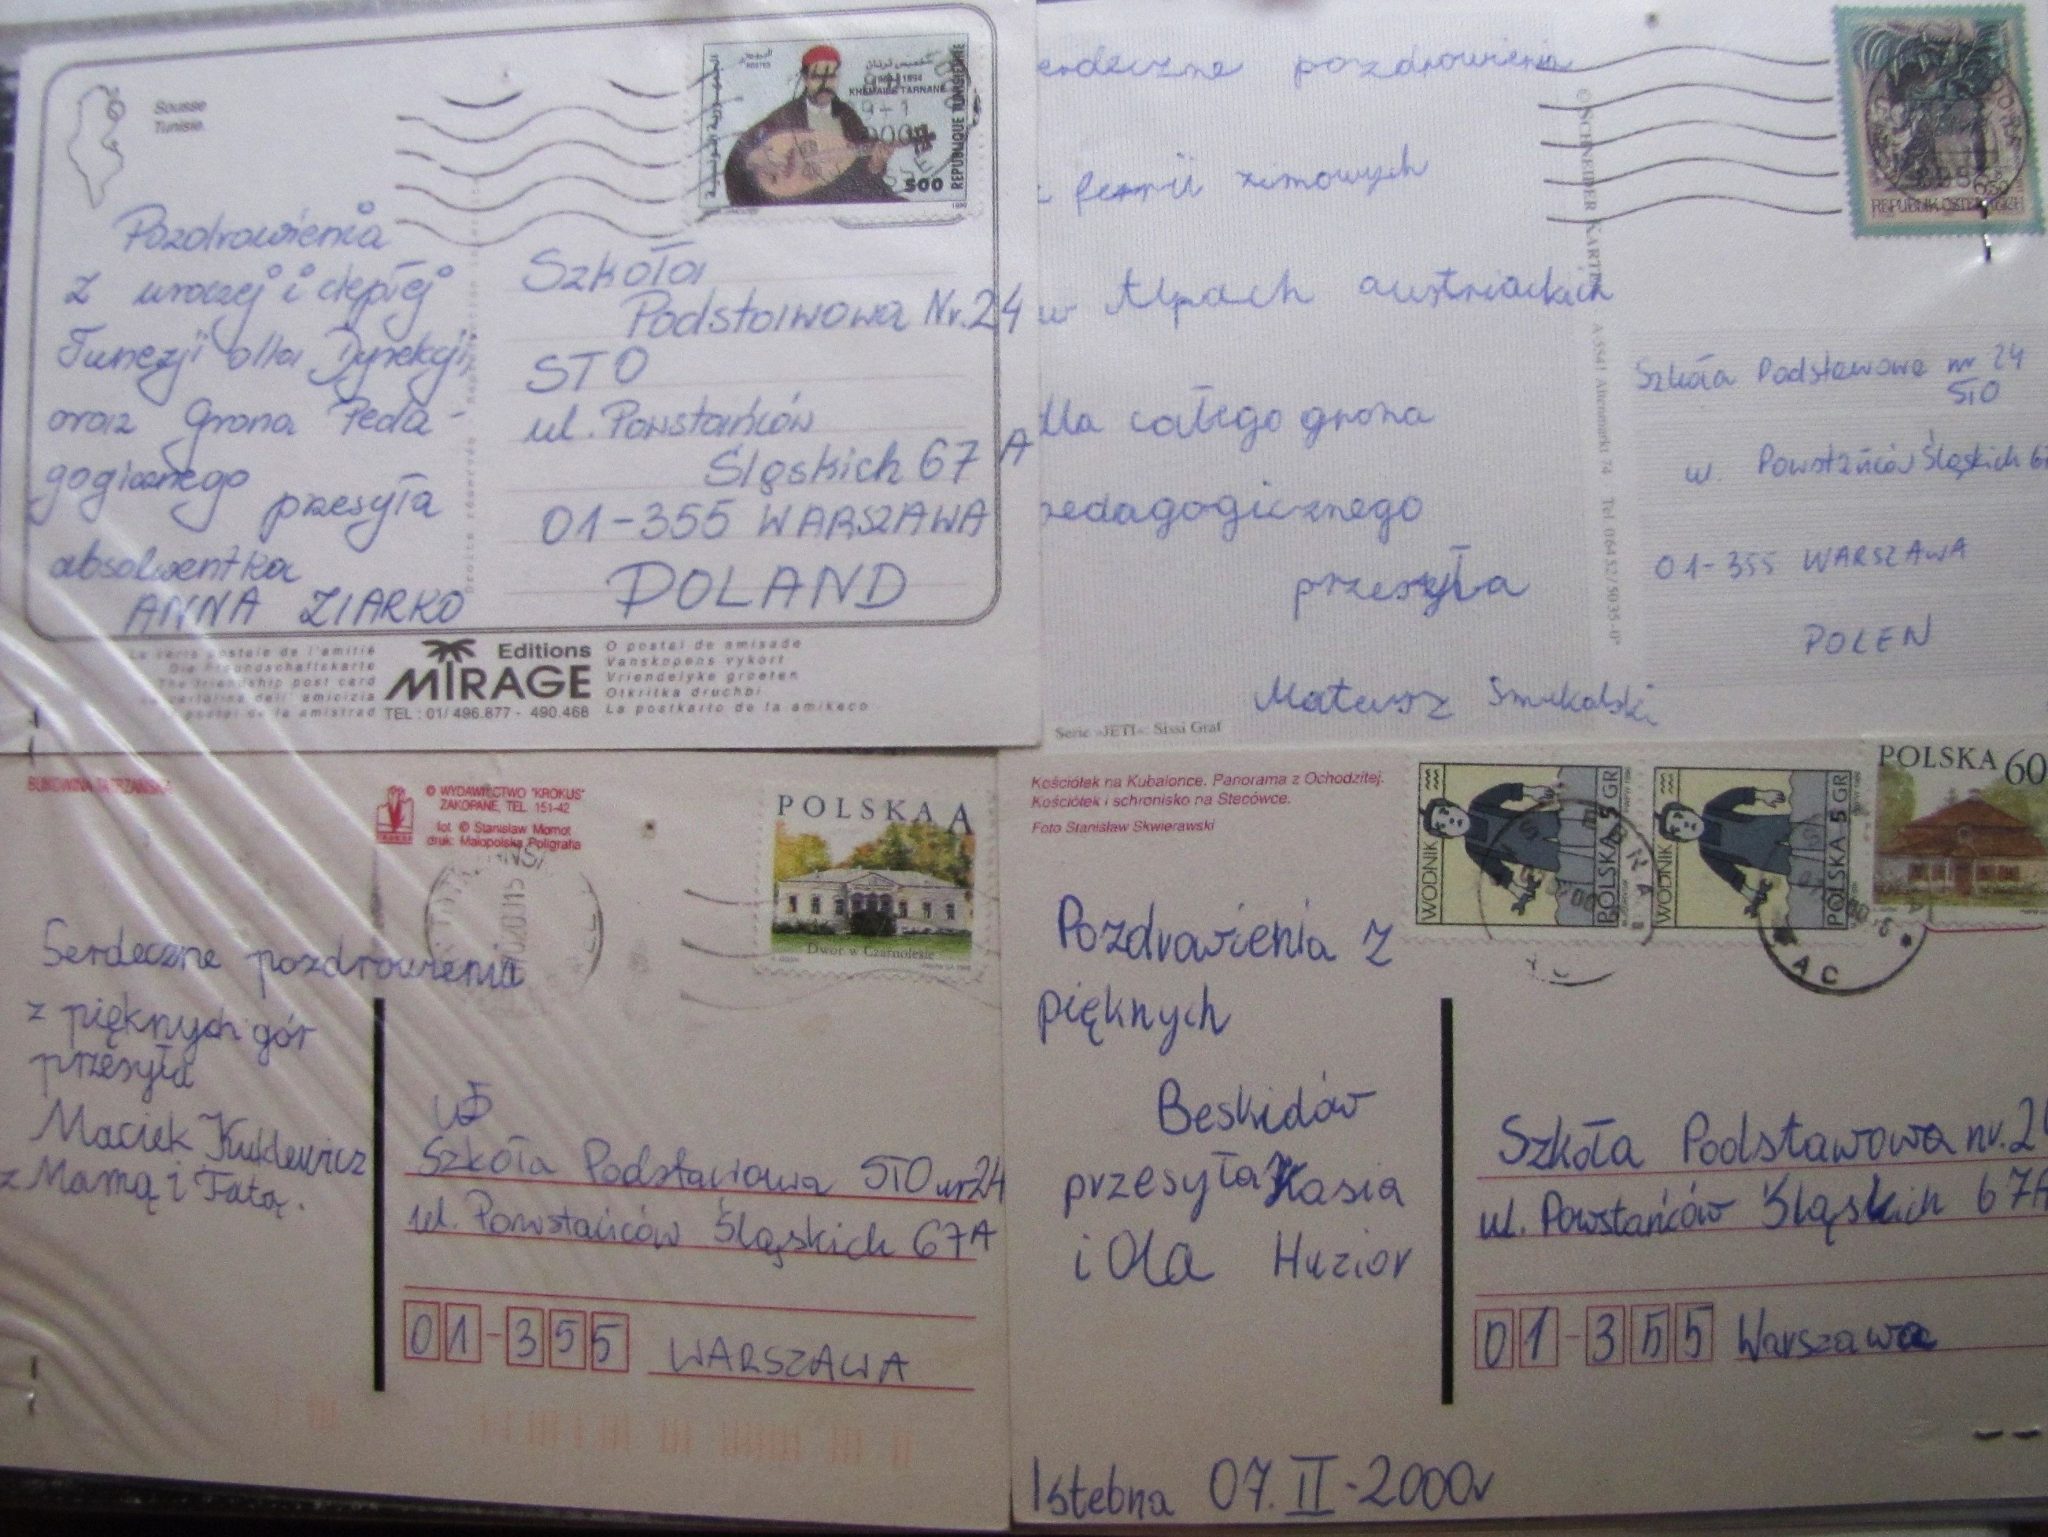 Sousse
Tunisie
الجمهورية التونسية
خميس ترنان
1894
KHEMAIES TARNANE
500
REPUBLIQUE TUNISIENNE
Pozdrowienia
z uroczej i ciepłej
Tunezji dla Dyrekcji
oraz Grona Peda-
gogicznego
przesyła
absolwentka
ANNA ZIARKO
Szkoła
Podstawowa Nr. 24
STO
ul. Powstańców
Śląskich 67 A
01-355 WARSZAWA
POLAND
La carte postale de l'amitié
Die Freundschaftskarte
The friendship post card
Editions
MIRAGE
TEL : 01/ 496.877 - 490.468
O postal de amisade
Vanskapens vykort
Vriendelyke groeten
Otkritka druchbi
La postkarto de la amikeco
erdeczne pozdrowienia
z ferii zimowych
w Alpach austriackich
dla całego grona
pedagogicznego
przesyła
Mateusz Smukalski
Serie »JETI«: Sissi Graf
REPUBLIK ÖSTERREICH
Szkoła Podstawowa nr 24
STO
ul. Powstańców Śląskich 67
01-355 WARSZAWA
POLEN
BUKOWINA TATRZAŃSKA
© WYDAWNICTWO "KROKUS"
ZAKOPANE, TEL. 151-42
fot. © Stanisław Momot
druk: Małopolska Poligrafia
POLSKA A
Dwór w Czarnolesie
Serdeczne pozdrowienia
z pięknych gór
przesyła
Maciek
z Mamą i Tatą.
Szkoła Podstawowa STO nr 24
ul. Powstańców Śląskich 67A
01-355 WARSZAWA
Kościółek na Kubalonce. Panorama z Ochodzitej.
Kościółek i schronisko na Stecówce.
Foto Stanisław Skwierawski
WODNIK
POLSKA 5 GR
WODNIK
POLSKA 5 GR
POLSKA 60
Pozdrowienia z
pięknych
Beskidów
przesyła Kasia
i Ola Huzior
Szkoła Podstawowa nr. 24
ul. Powstańców Śląskich 67A
01-355 Warszawa
Istebna 07. II - 2000r